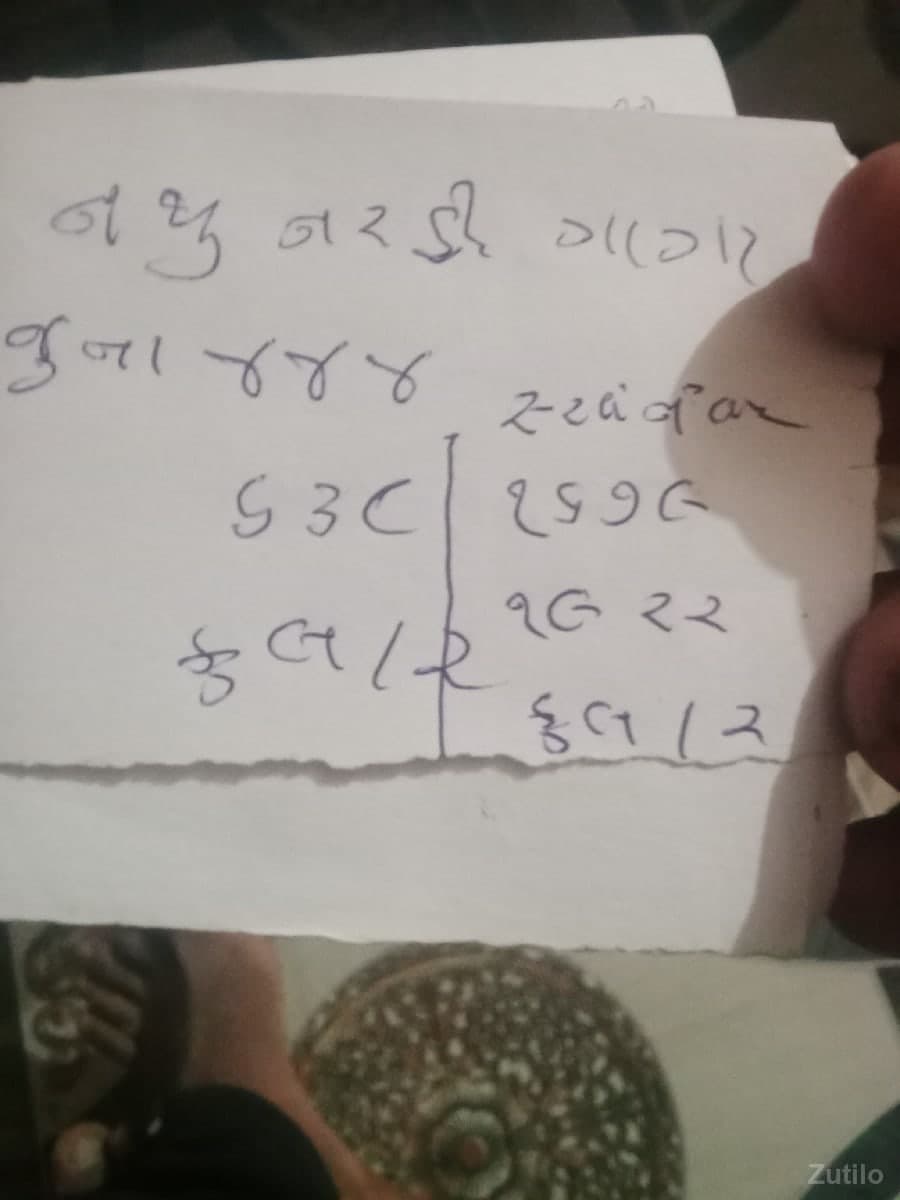 નથુ નરડી ગાગર
જુના ૪૪૪
૬૩૮
કુલ ૧૨
૨૬૭૯
૧૯ ૨૨
કુલ ૧૨
Zutilo